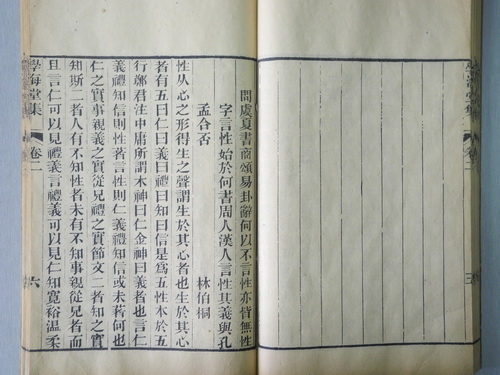 問虞夏書商頌易卦辭何以不言性亦皆無性
字言性始於何書周人漢人言性其義與孔
孟合否 林伯桐
性从心之形得生之聲謂生於其心者也生於其心
者有五曰仁曰義曰禮曰知曰信是為五性本於五
行鄭君注中庸所謂木神曰仁金神曰義者也言仁
義禮知信則性著言性則仁義禮知信或未著何也
仁之實事親義之實從兄禮之實節文二者知之實
知斯二者人有不知性者未有不知事親從兄者而
且言仁可以見禮義言禮義可以見仁知寬裕溫柔
學海堂集 卷二 六